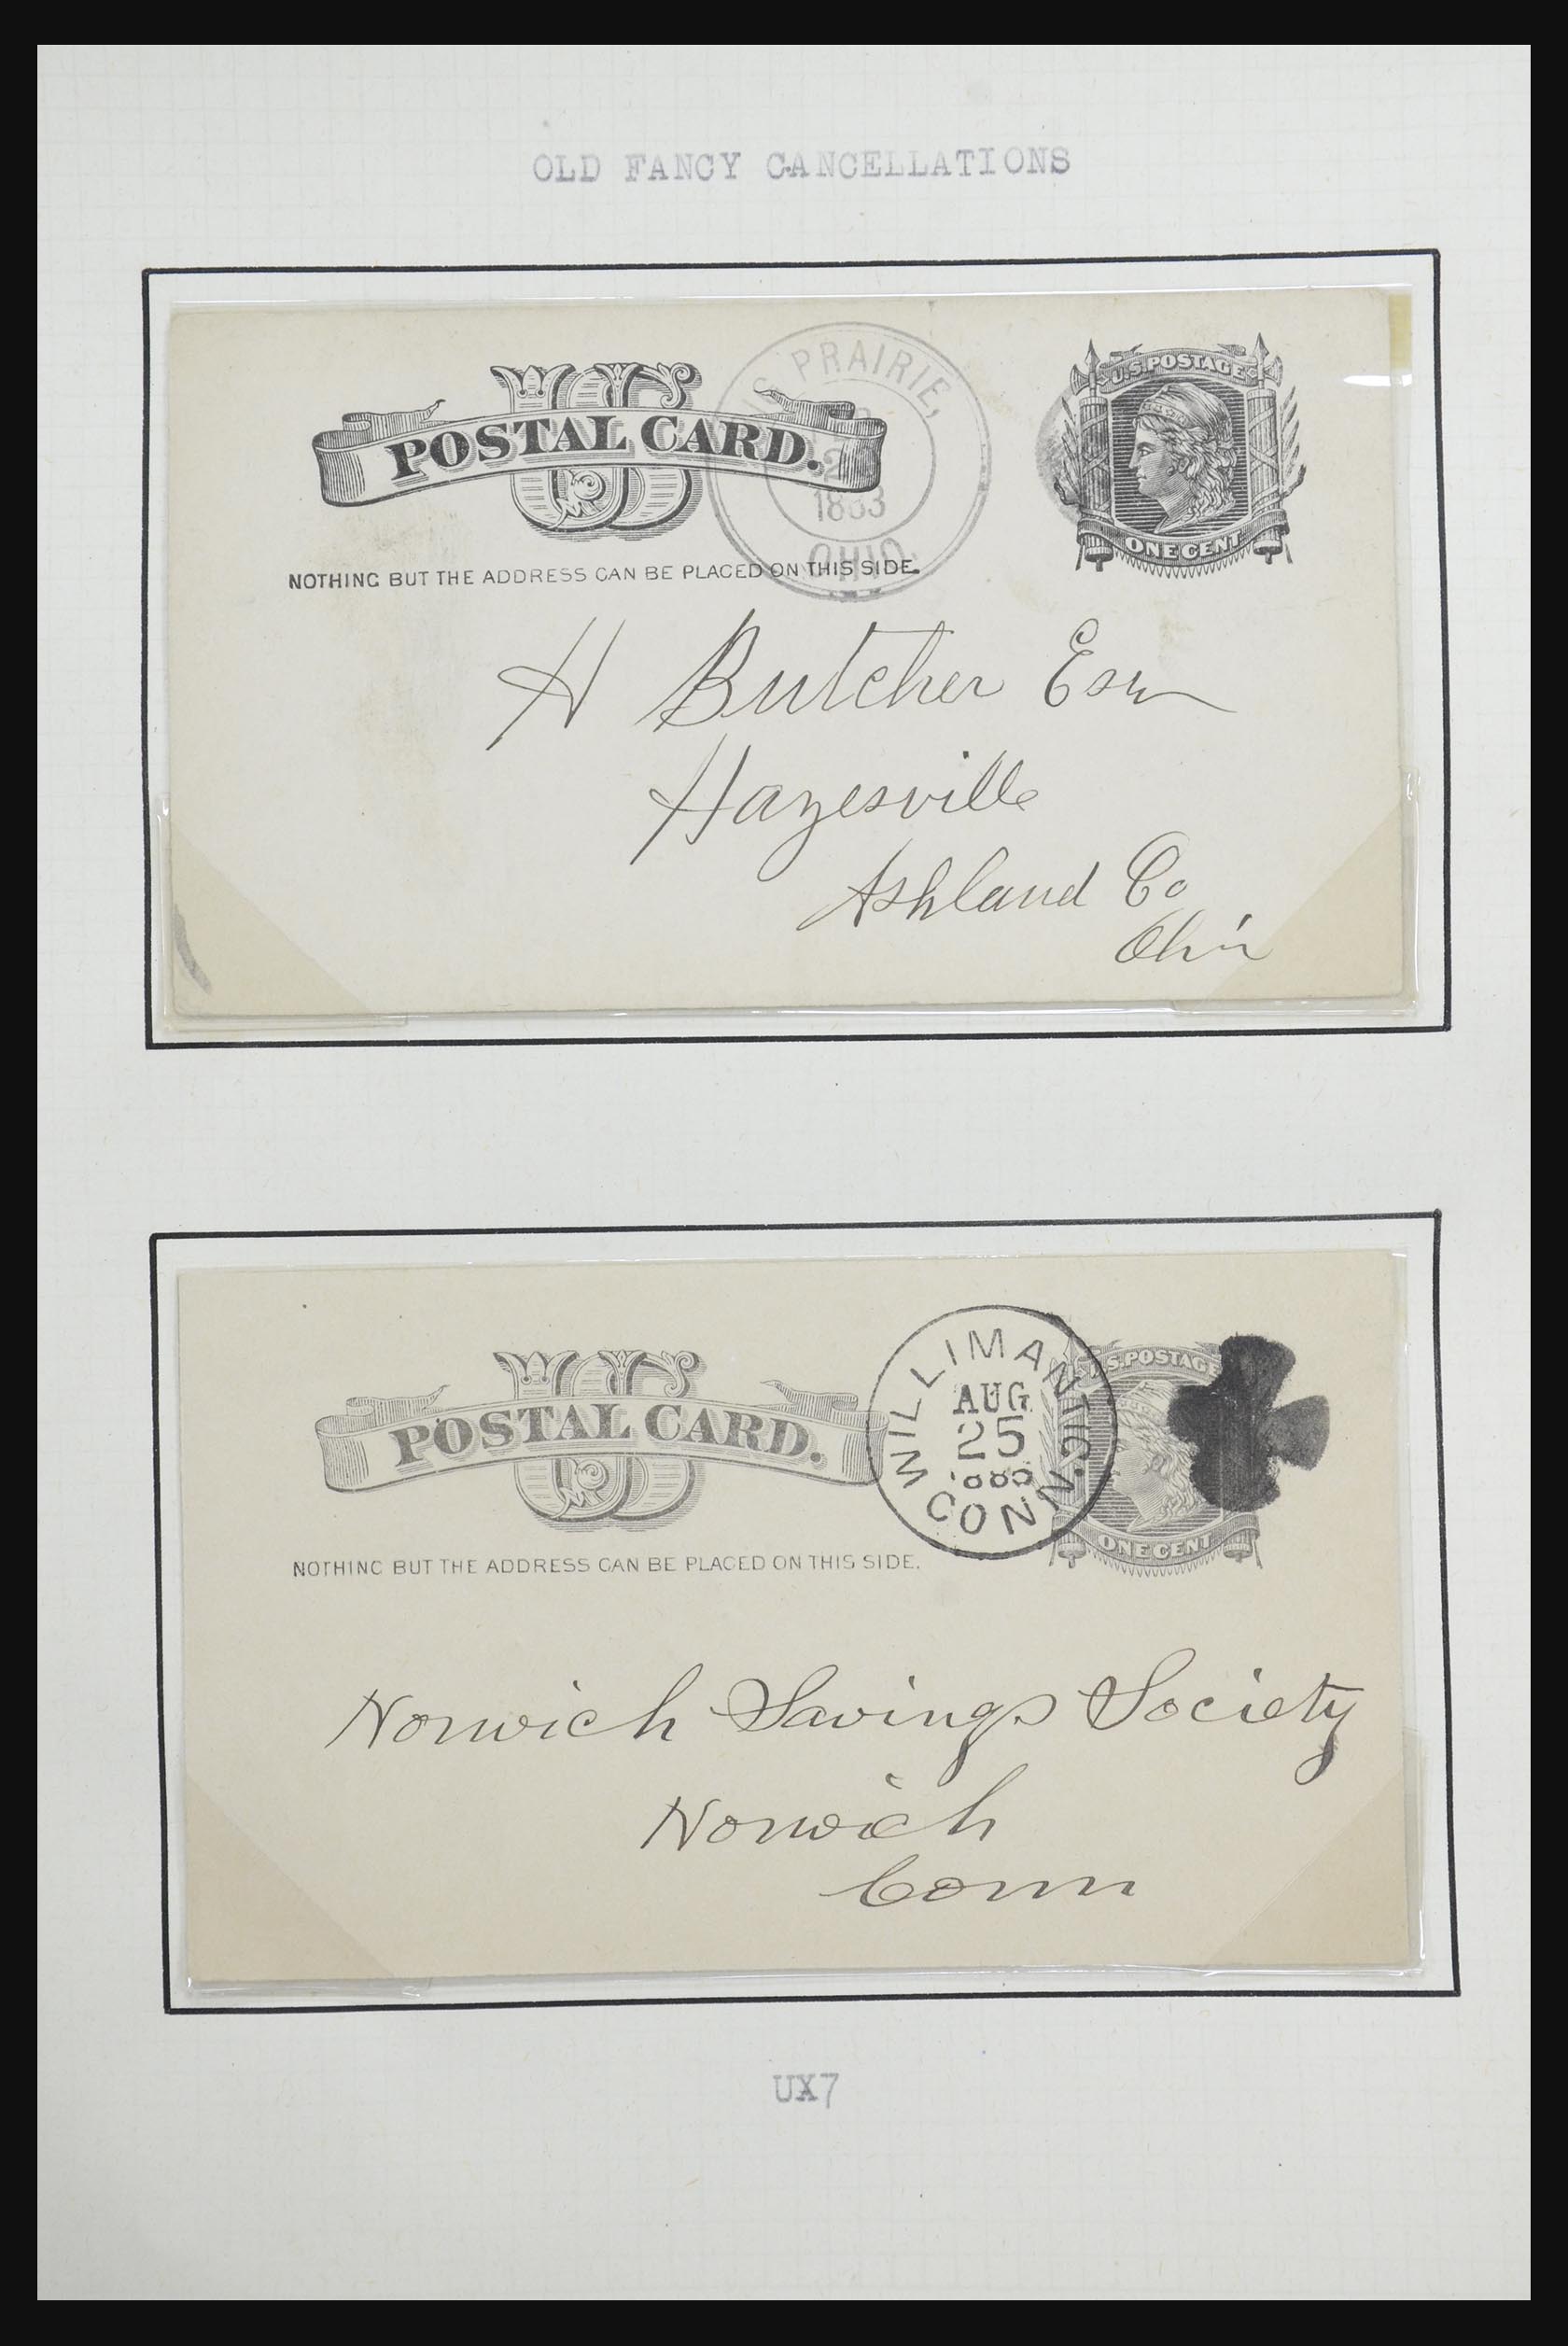 OLD FANCY CANCELLATIONS
US
POSTAL CARD.
NOTHING BUT THE ADDRESS CAN BE PLACED ON THIS SIDE.
PRAIRIE,
OHIO.
U.S. POSTAGE
ONE CENT
H Butcher Esqr
Hayesville
Ashland Co
Ohio
US
POSTAL CARD.
NOTHING BUT THE ADDRESS CAN BE PLACED ON THIS SIDE.
WILLIMANTIC.
AUG
25
CONN
U.S. POSTAGE
ONE CENT
Norwich Savings Society
Norwich
Conn
UX7